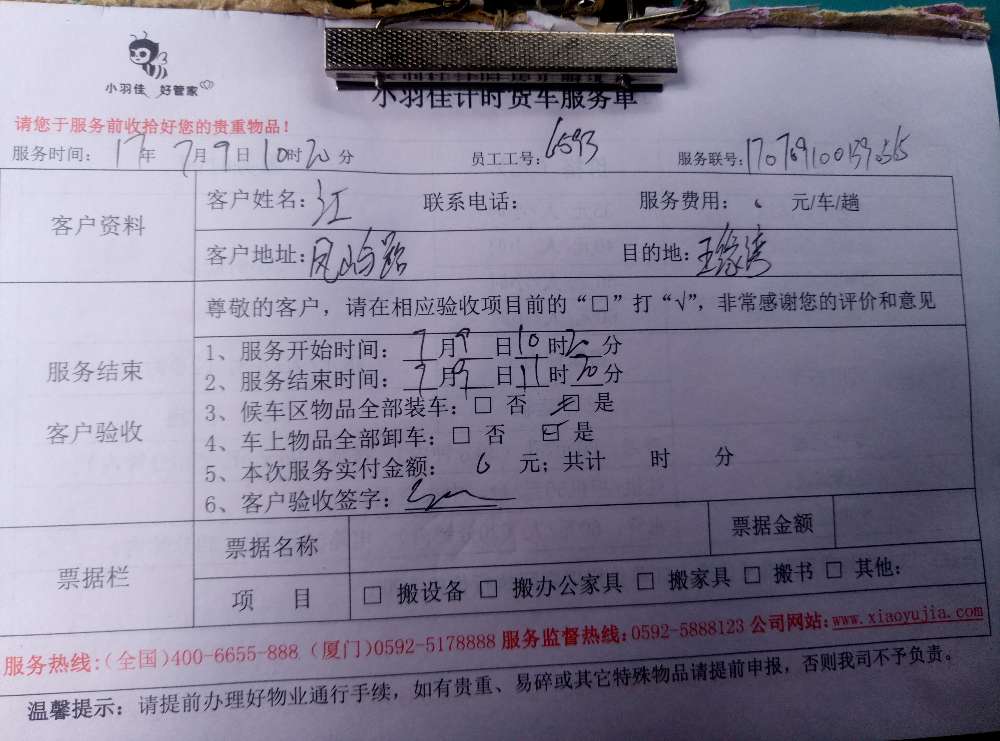 小羽佳 好管家
小羽佳计时货车服务单
请您于服务前收拾好您的贵重物品!
服务时间: 17年 7月 9日 10时20分 员工工号: 6593 服务联号:
客户资料 客户姓名: 江 联系电话: 服务费用: 元/车/趟
客户地址: 凤屿路 目的地:
服务结束 客户验收
尊敬的客户,请在相应验收项目前的“□”打“√”,非常感谢您的评价和意见
1、服务开始时间: 7月 9日 10时20分
2、服务结束时间: 7月 9日 11时20分
3、候车区物品全部装车: □ 否 ☑ 是
4、车上物品全部卸车: □ 否 ☑ 是
5、本次服务实付金额: 元; 共计 时 分
6、客户验收签字:
票据栏 票据名称 票据金额
项 目 □ 搬设备 □ 搬办公家具 □ 搬家具 □ 搬书 □ 其他:
服务热线:(全国)400-6655-888 (厦门)0592-5178888 服务监督热线:0592-5888123 公司网站:www.xiaoyujia.com
温馨提示: 请提前办理好物业通行手续,如有贵重、易碎或其它特殊物品请提前申报,否则我司不予负责。